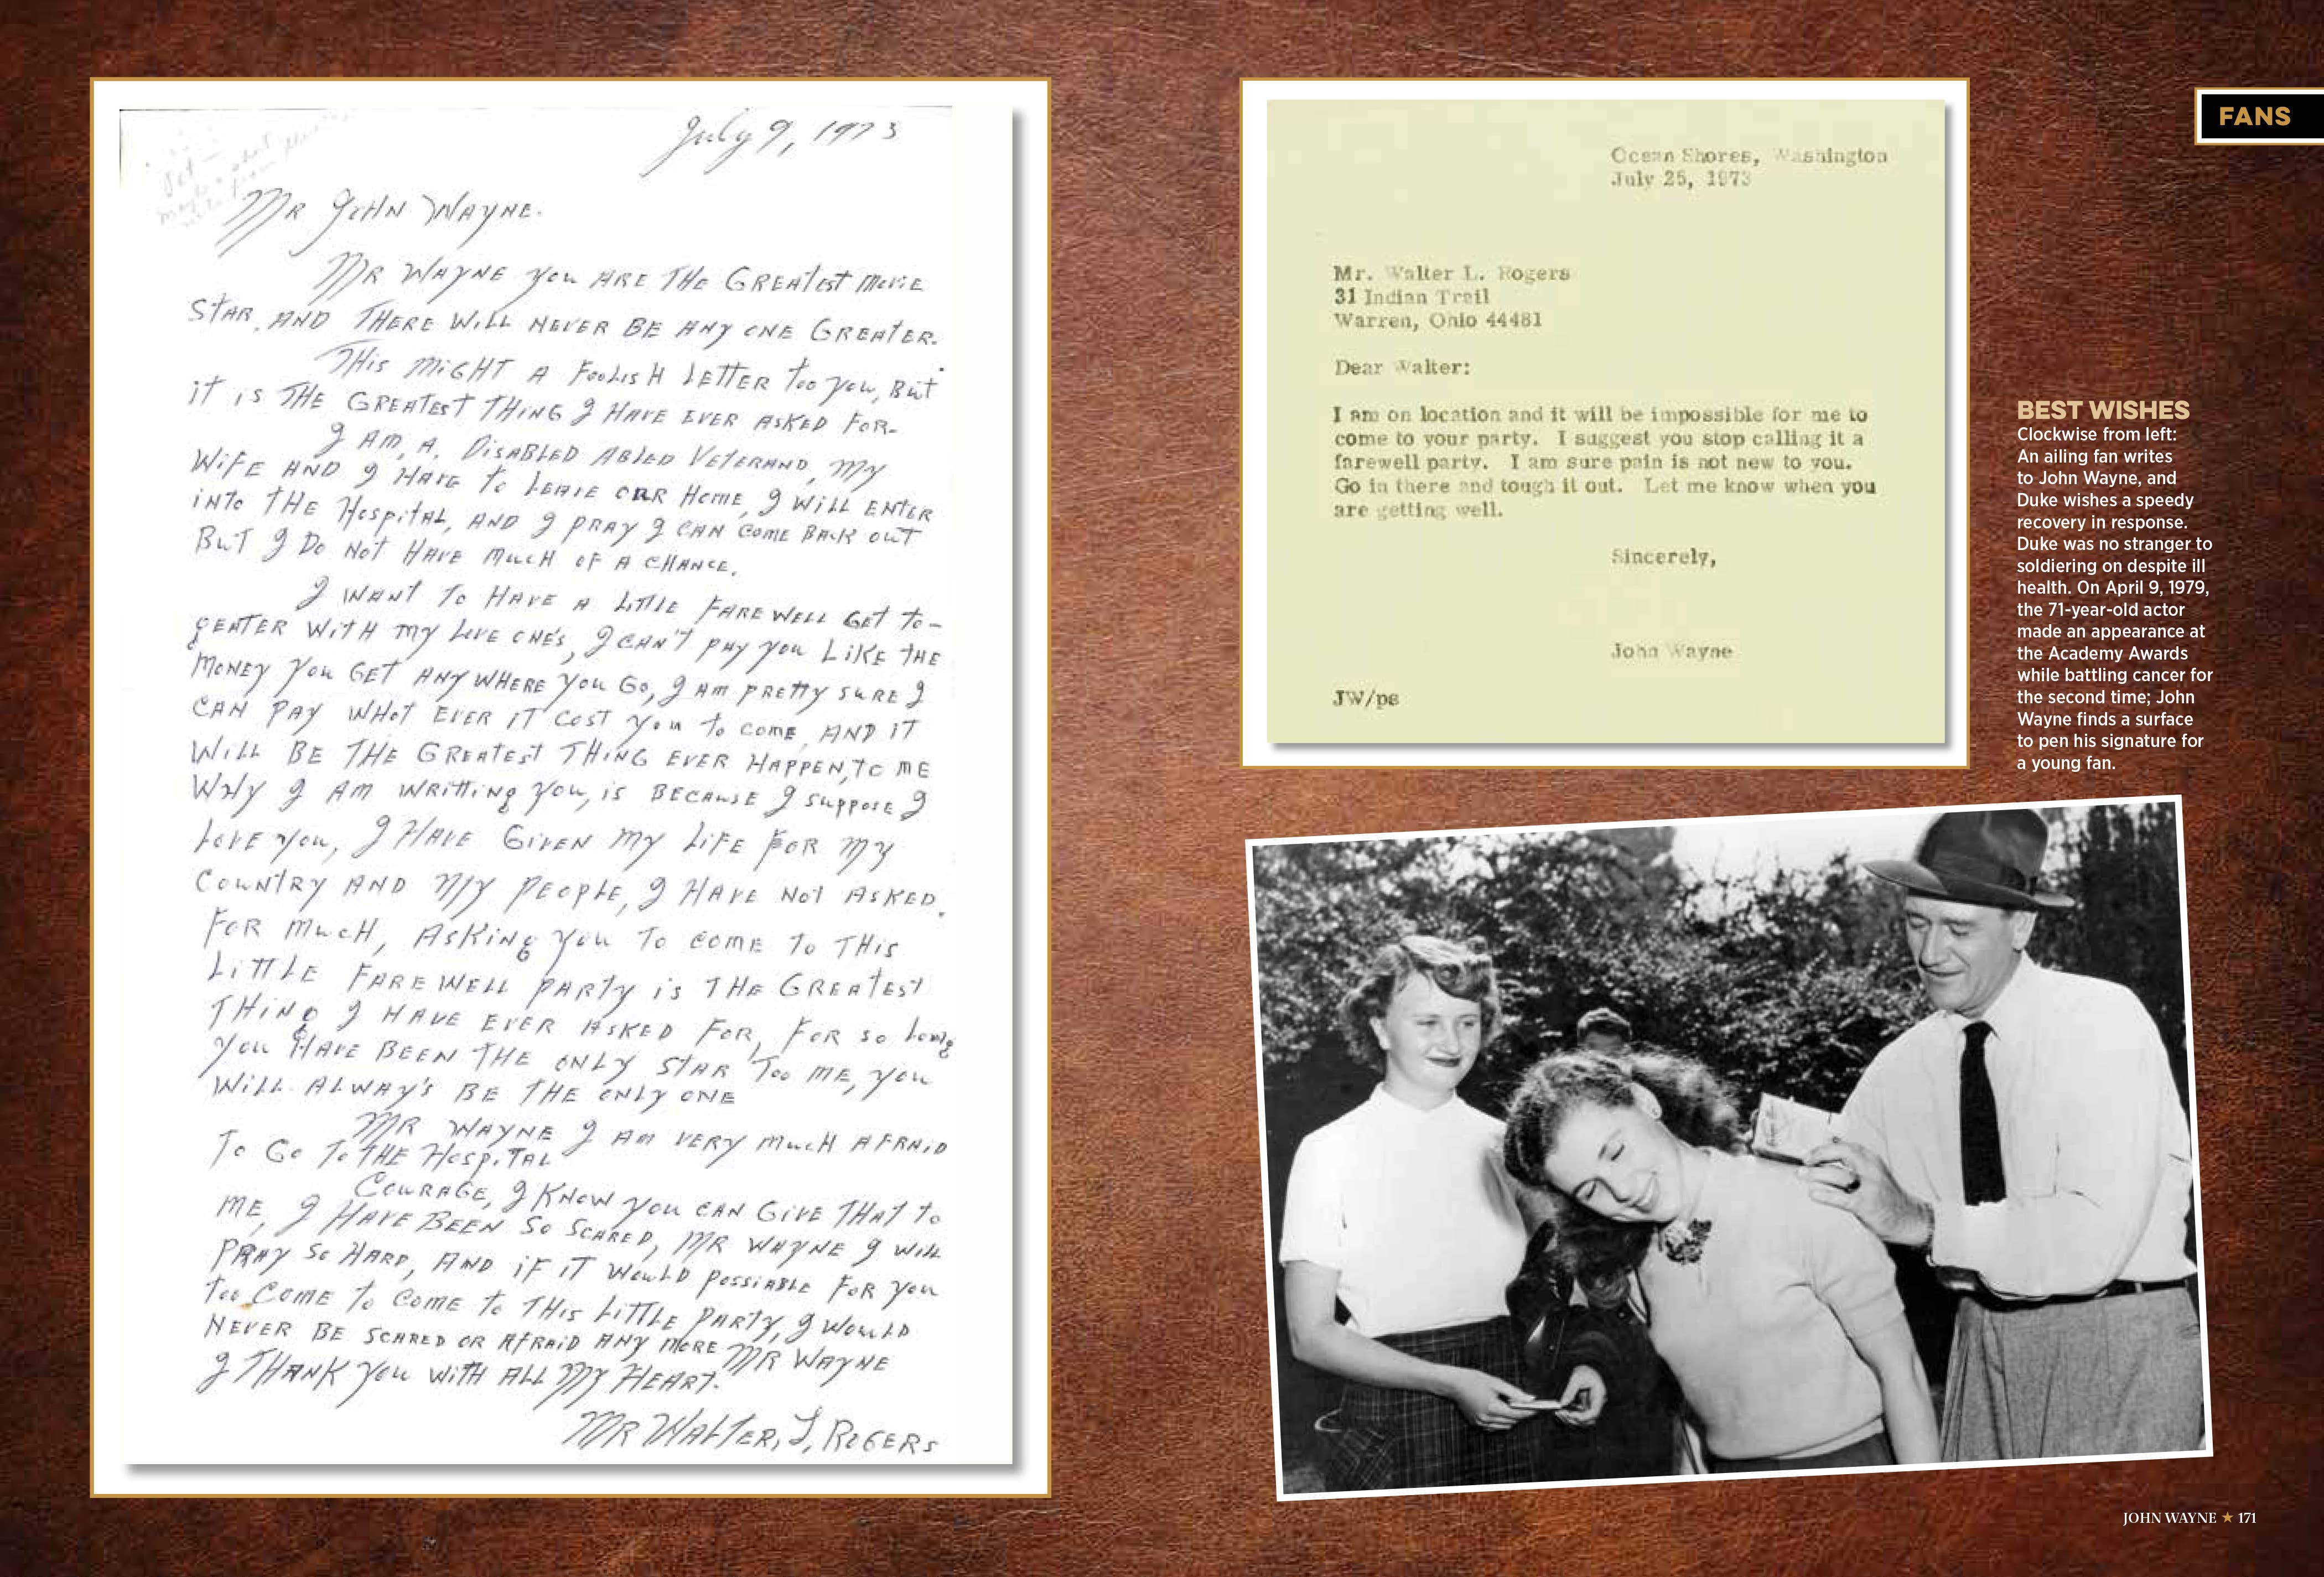 July 9, 1973
MR JOHN WAYNE.
MR WAYNE you ARE THE GREATEST MOVIE
STAR, AND THERE WILL NEVER BE ANY ONE GREATER.
THIS MIGHT A FOOLISH LETTER TOO YOU, BUT
IT IS THE GREATEST THING I HAVE EVER ASKED FOR.
I AM, A, DISABLED ABLED VETERAND, MY
WIFE AND I HAVE TO LEAVE OUR HOME, I WILL ENTER
INTO THE HOSPITAL, AND I PRAY I CAN COME BACK OUT
BUT I DO NOT HAVE MUCH OF A CHANCE.
I WANT TO HAVE A LITTLE FAREWELL GET TO-
GEATER WITH MY LOVE ONE'S, I CAN'T PAY YOU LIKE THE
MONEY YOU GET ANY WHERE YOU GO, I AM PRETTY SURE I
CAN PAY WHOT EVER IT COST YOU TO COME, AND IT
WILL BE THE GREATEST THING EVER HAPPEN, TO ME
WHY I AM WRITTING YOU, IS BECAUSE I SUPPOSE I
LOVE YOU, I HAVE GIVEN MY LIFE FOR MY
COUNTRY AND MY PEOPLE, I HAVE NOT ASKED.
FOR MUCH, ASKING YOU TO COME TO THIS
LITTLE FAREWELL PARTY IS THE GREATEST
THING I HAVE EVER ASKED FOR, FOR SO LONG
YOU HAVE BEEN THE ONLY STAR TOO ME, YOU
WILL ALWAY'S BE THE ONLY ONE
MR WAYNE I AM VERY MUCH AFRAID
TO GO TO THE HOSPITAL
COURAGE, I KNOW YOU CAN GIVE THAT TO
ME, I HAVE BEEN SO SCARED, MR WAYNE I WILL
PRAY SO HARD, AND IF IT WOULD POSSIABLE FOR YOU
TOO COME TO COME TO THIS LITTLE PARTY, I WOULD
NEVER BE SCARED OR AFRAID ANY MORE MR WAYNE
I THANK YOU WITH ALL MY HEART.
MR WALTER, L, ROGERS
Ocean Shores, Washington
July 25, 1973
Mr. Walter L. Rogers
31 Indian Trail
Warren, Ohio 44481
Dear Walter:
I am on location and it will be impossible for me to
come to your party. I suggest you stop calling it a
farewell party. I am sure pain is not new to you.
Go in there and tough it out. Let me know when you
are getting well.
Sincerely,
John Wayne
JW/ps
FANS
BEST WISHES
Clockwise from left:
An ailing fan writes
to John Wayne, and
Duke wishes a speedy
recovery in response.
Duke was no stranger to
soldiering on despite ill
health. On April 9, 1979,
the 71-year-old actor
made an appearance at
the Academy Awards
while battling cancer for
the second time; John
Wayne finds a surface
to pen his signature for
a young fan.
JOHN WAYNE ★ 171